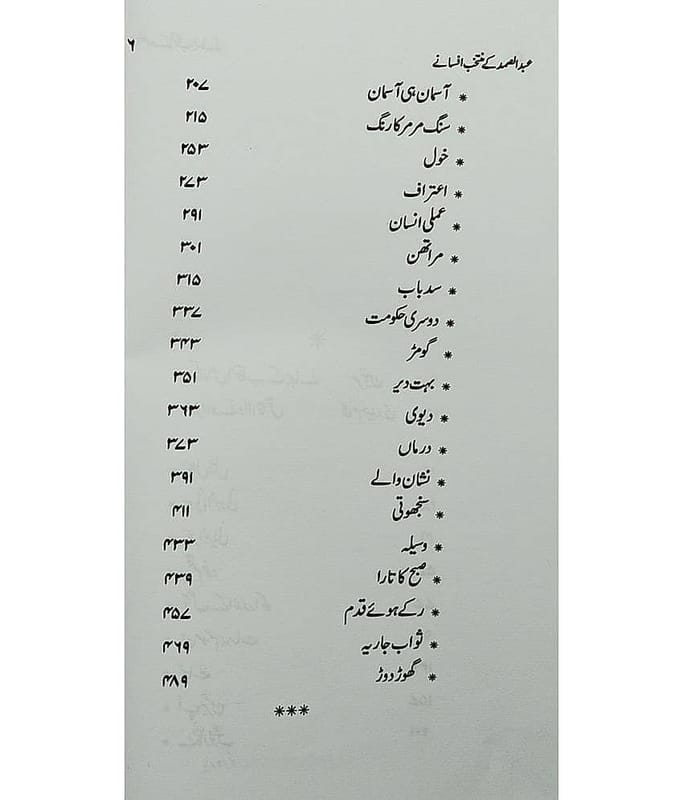 عبدالصمد کے منتخب افسانے ۶
* آسمان ہی آسمان ۲۰۷
* سنگ مرمر کا رنگ ۲۱۵
* خول ۲۵۳
* اعتراف ۲۷۳
* عملی انسان ۲۹۱
* مراتھن ۳۰۱
* سدباب ۳۱۵
* دوسری حکومت ۳۳۷
* گومڑ ۳۴۳
* بہت دیر ۳۵۱
* دیوی ۳۶۳
* درماں ۳۷۳
* نشان والے ۳۹۱
* سنجھوتی ۴۱۱
* وسیلہ ۴۳۳
* صبح کا تارا ۴۳۹
* رکے ہوئے قدم ۴۵۷
* ثواب جاریہ ۴۶۹
* گھوڑ دوڑ ۴۸۹
***